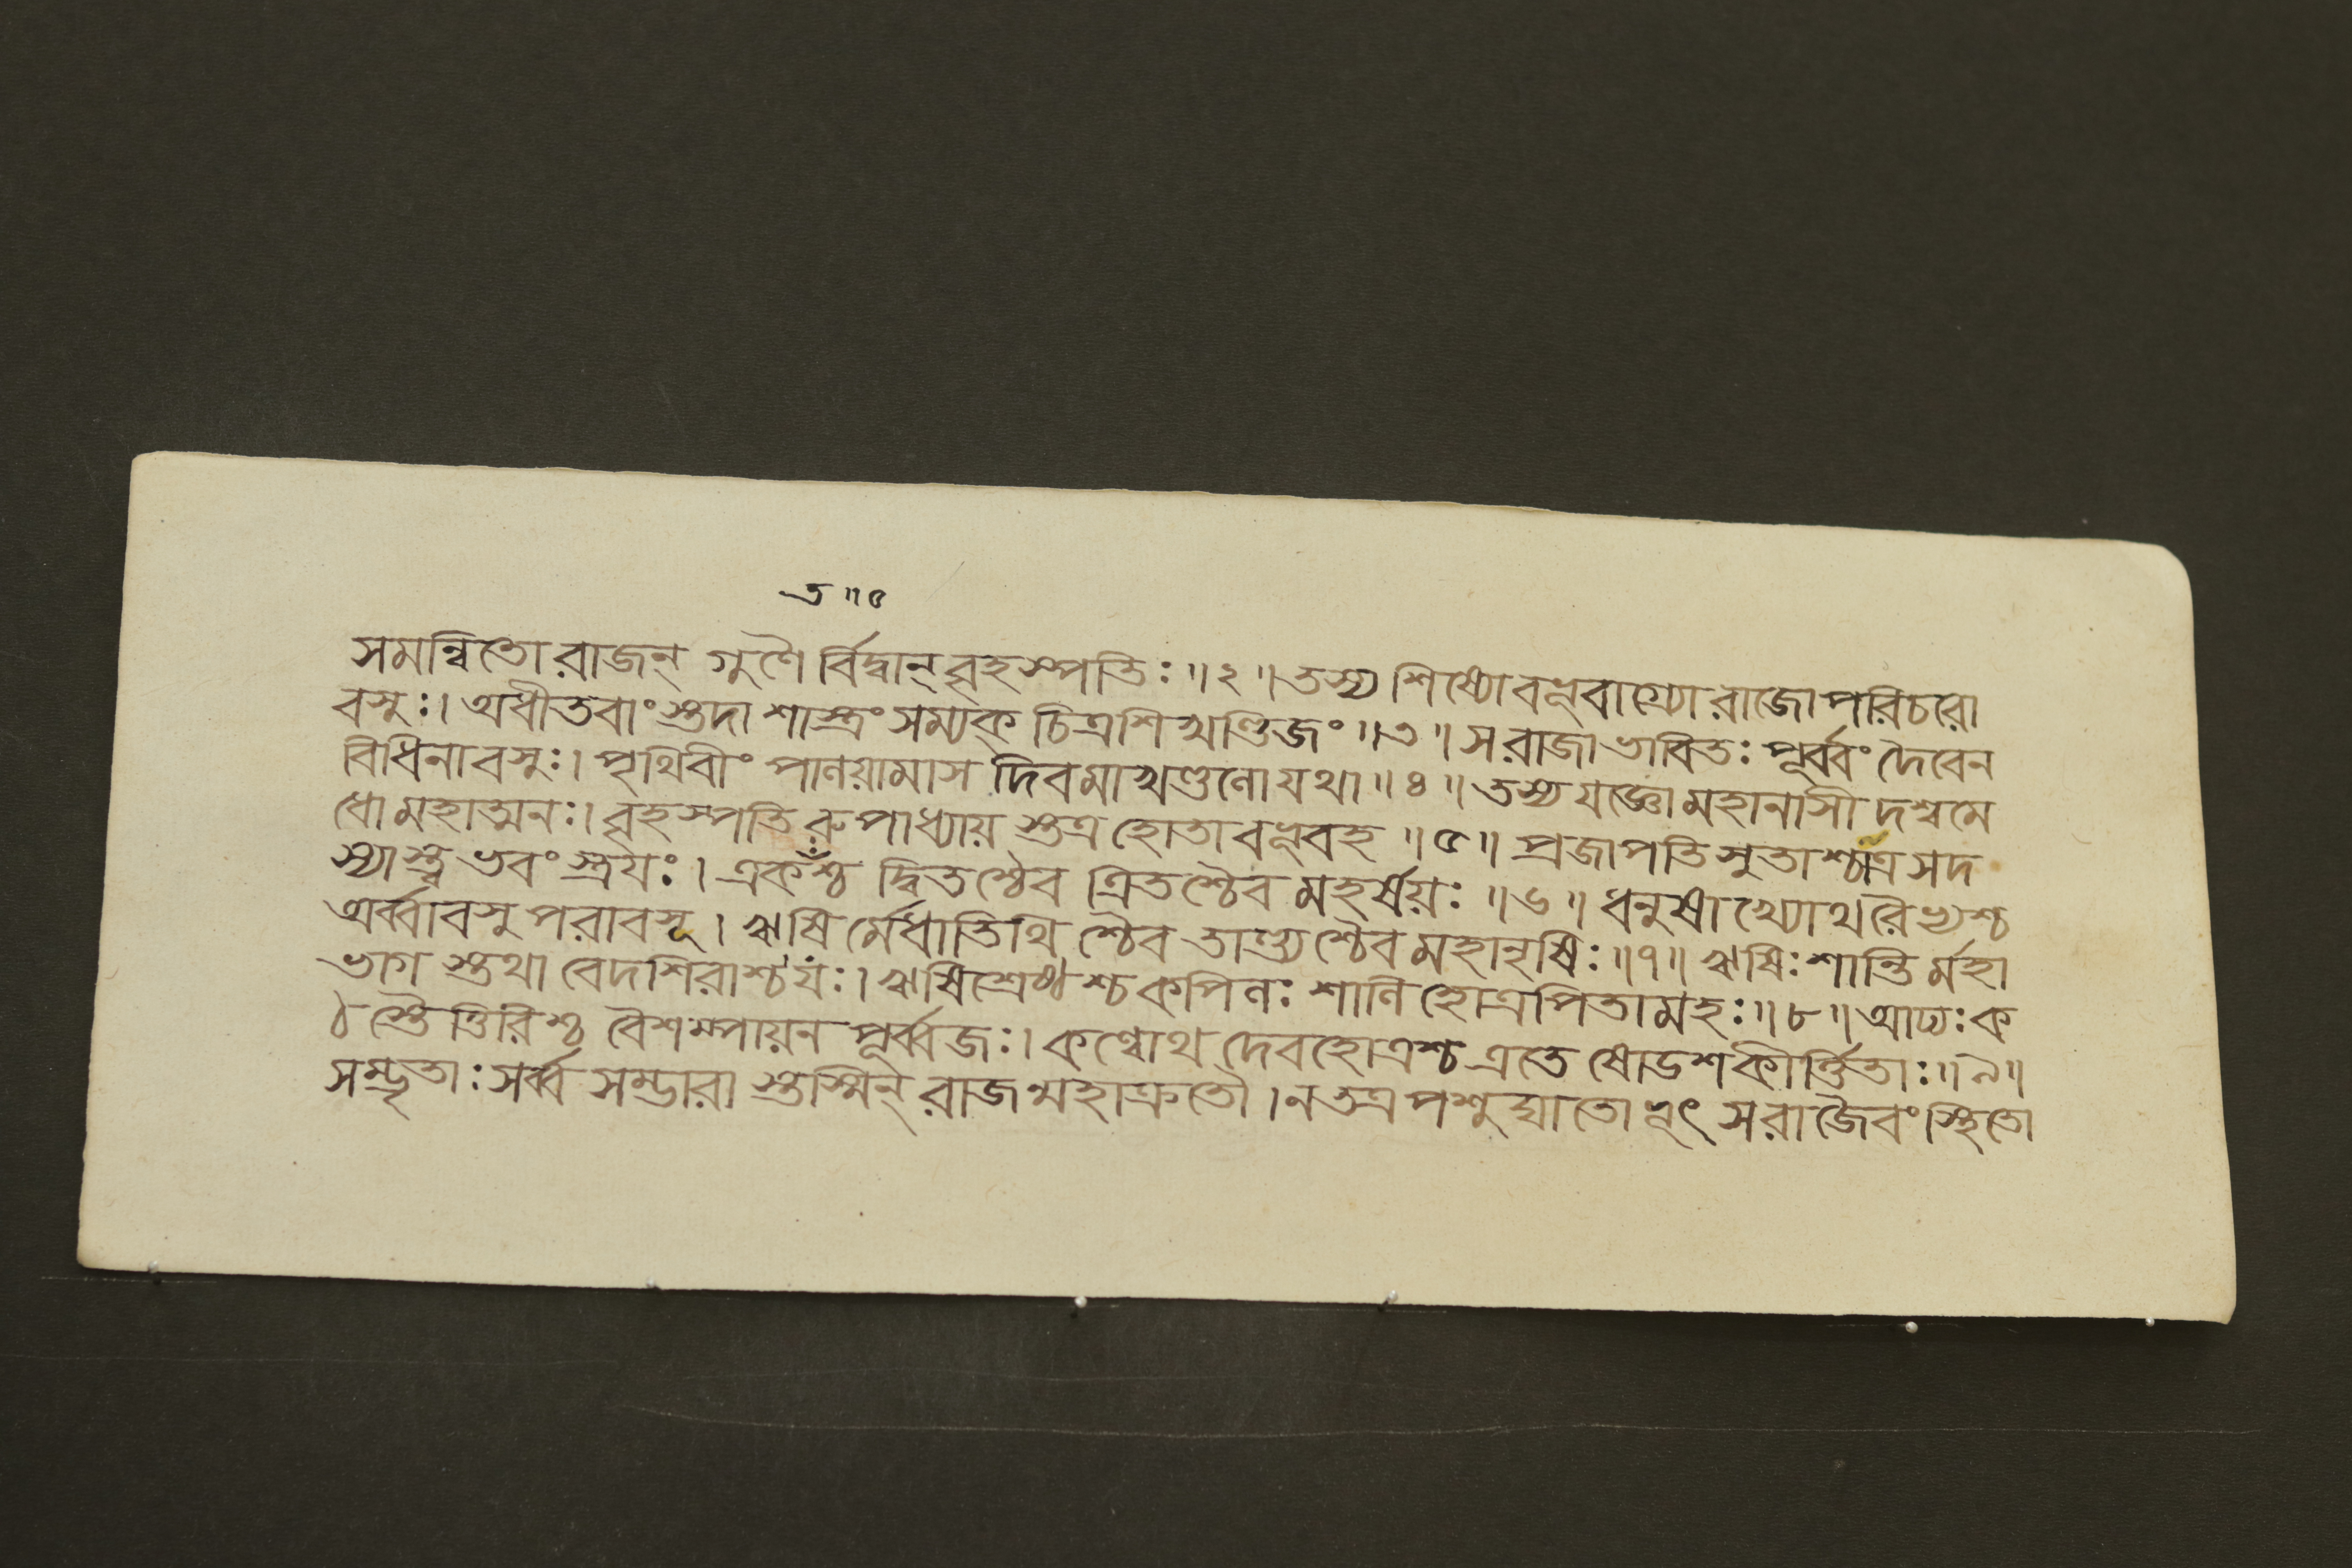 ত॥৫
সমন্বিতো রাজন্ গুণৈ র্বিদ্বান্ বৃহস্পতিঃ॥২॥তস্য শিষ্যো বভূবাগ্র্যো রাজোপরিচরো
বসুঃ। অধীতবাংস্তদা শাস্ত্রং সম্যক্ চিত্রশিখণ্ডিজং॥৩॥ স রাজা ভাবিতঃ পূর্ব্বং দৈবেন
বিধিনা বসুঃ। পৃথিবীং পালয়ামাস দিবমাখণ্ডলো যথা॥৪॥ তস্য যজ্ঞো মহানাসী দশ্বমে
ধো মহাত্মনঃ। বৃহস্পতি রুপাধ্যায় স্তত্র হোতা বভূবহ॥৫॥ প্রজাপতি সুতাশ্চাত্র সদ
স্যাস্ত্ব ভবং স্ত্রযঃ। একঁশ্চ দ্বিতশ্চৈব ত্রিতশ্চৈব মহর্ষয়ঃ॥৬॥ ধনুষাখ্যোথ রৈভ্যশ্চ
অর্ব্বাবসু পরাবসূ। ঋষি র্মেধাতিথি শ্চৈব তাণ্ড্যশ্চৈব মহানৃষিঃ॥৭॥ ঋষিঃ শান্তি র্মহা
ভাগ স্তথা বেদশিরাশ্চ যঃ। ঋষিশ্রেষ্ঠশ্চ কপিলঃ শালিহোত্রপিতামহঃ॥৮॥ আদ্যঃ ক
ঠ স্তৈত্তিরিশ্চ বৈশম্পায়ন পূর্ব্বজঃ। কণ্বোথ দেবহোত্রশ্চ এতে ষোডশ কীর্ত্তিতাঃ॥৯॥
সম্ভৃতাঃ সর্ব্ব সম্ভারা স্তস্মিন্ রাজন্মহাক্রতৌ। ন তত্র পশুদ্ঘাতোভূৎ স রাজৈবং স্থিতো